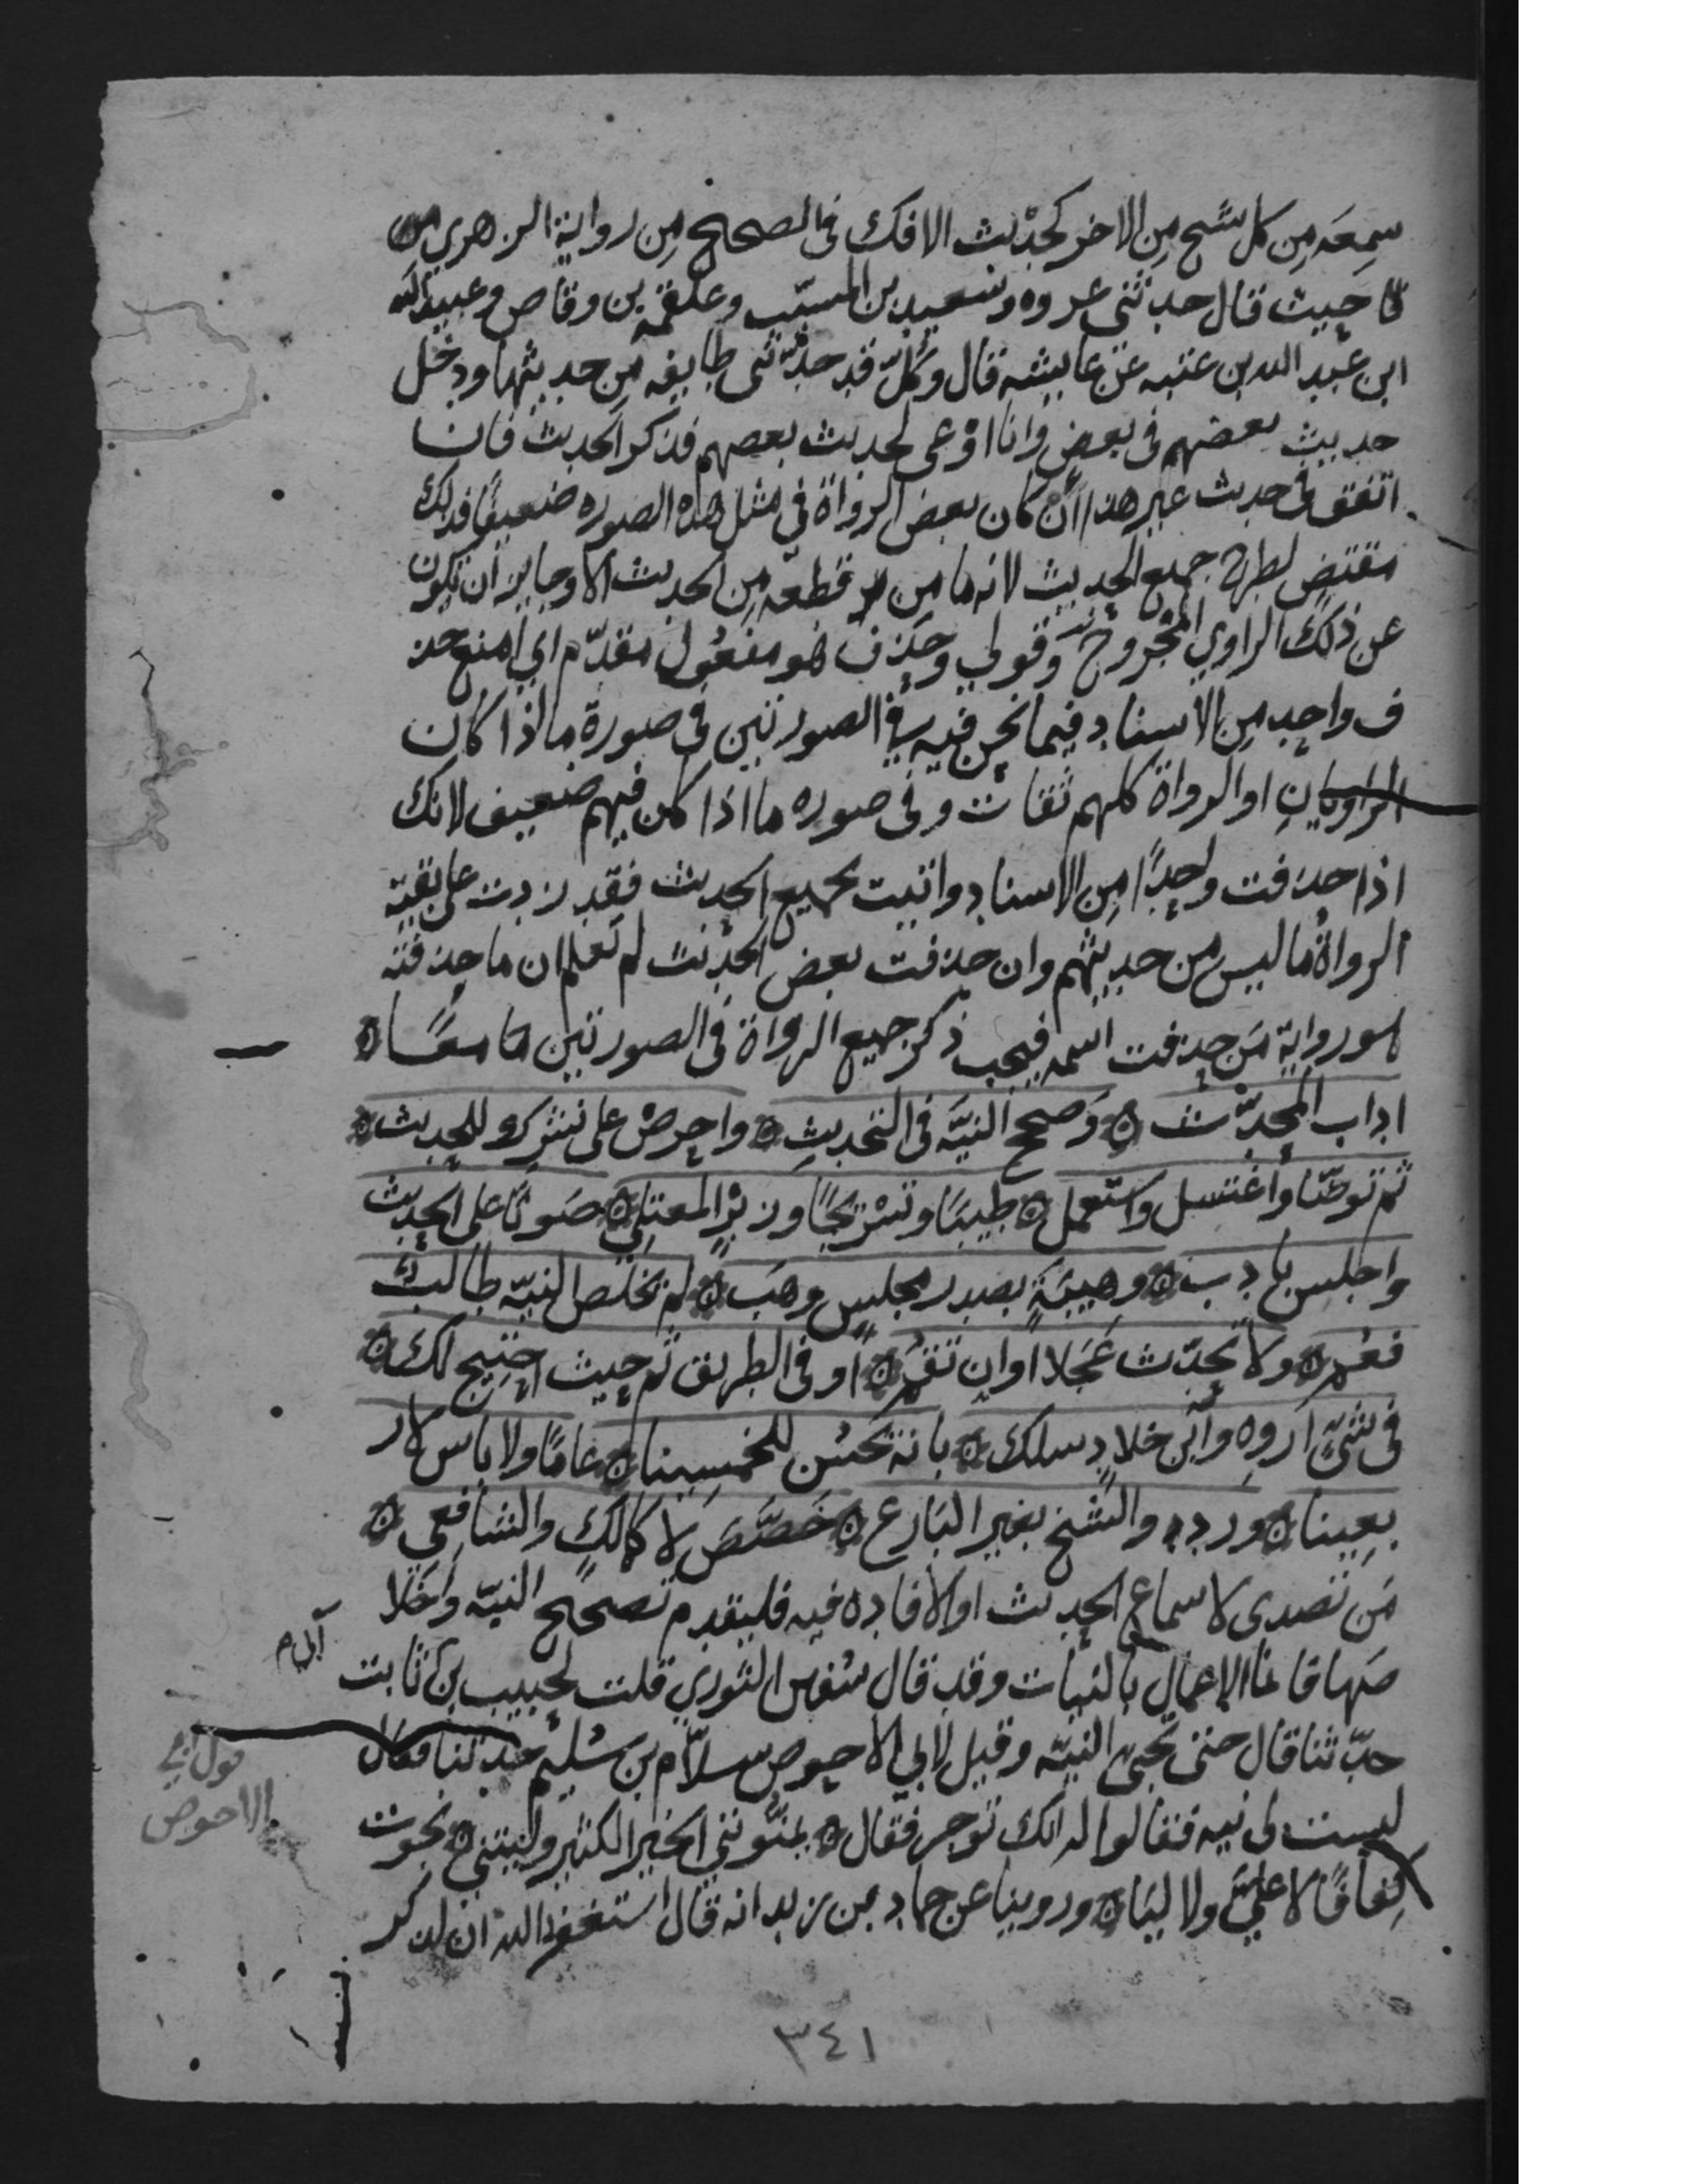 سمعه من كل شيخ من الاخر كحديث الافك في الصحيح من رواية الزهري
حيث قال حدثني عروه وسعيد بن المسيّب وعلقمه بن وقاص وعبيد الله
ابن عبد الله بن عتبه عن عايشه قال وكلّ قد حدّثني طايفه من حديثها ودخل
حديث بعضهم في بعض وانا اوعى لحديث بعضهم فذكر الحديث فان
اتفق في حديث غير هذا أن كان بعض الرواة في مثل هذه الصوره ضعيفًا فذلك
مقتض لطرح جميع الحديث لانه ما من قطعه من الحديث الا وجايز ان تكون
عن ذلك الراوي المجروح وقولي وحذف هو مفعول مقدّم اي امنع حذ
ف واحد من الاسناد فيما نحن فيه في الصورتين في صورة ما اذا كان
الراويان او الرواة كلهم ثقات وفي صوره ما اذا كان فيهم ضعيف لانك
اذا حذفت واحدًا من الاسناد واتيت بجميع الحديث فقد زدت على بقية
الرواة ما ليس من حديثهم وان حذفت بعض الحديث لم تعلم ان ما حذفته
هو رواية من حذفت اسمه فيجب ذكر جميع الرواة في الصورتين معًا
اداب المحدّث وصحح النيّة في التحديث واحرص على نشرك للحديث
ثم توضّا واغتسل واستعمل طيبًا وتسريحًا وزبر المعتلي صوتًا على الحديث
واجلس بادب وهيبةٍ بصدر مجلس وهب لم يخلص النيّه طالب
فعم ولا تحدّث عجلا او ان تقم او في الطريق ثم حيث احتيج لك
في شيءٍ اروه وابن خلاد سلك بانه يحسن للخمسينا عامًا ولا باس لار
بعينا ورد والشيخ بغير البارع خصّص لا كمالك والشافعي
من تصدى لاسماع الحديث او الافاده فيه فليقدم تصحيح النيّه واخلا
صها فانما الاعمال بالنيات وقد قال سفين الثوري قلت لحبيب بن ثابت
ابي
حدّثنا قال حتى تجيء النيّه وقيل لابي الاحوص سلّام بن سُليم حدثنا فقال
قول ابي
الاحوص
ليست لي نيه فقالوا له انك توجر فقال يمنّونني الخير الكثير وليتني نجوت
كفافًا لا عليّ ولا ليا وروينا عن حماد بن زيد انه قال استغفر الله ان لذكر
٣٤١